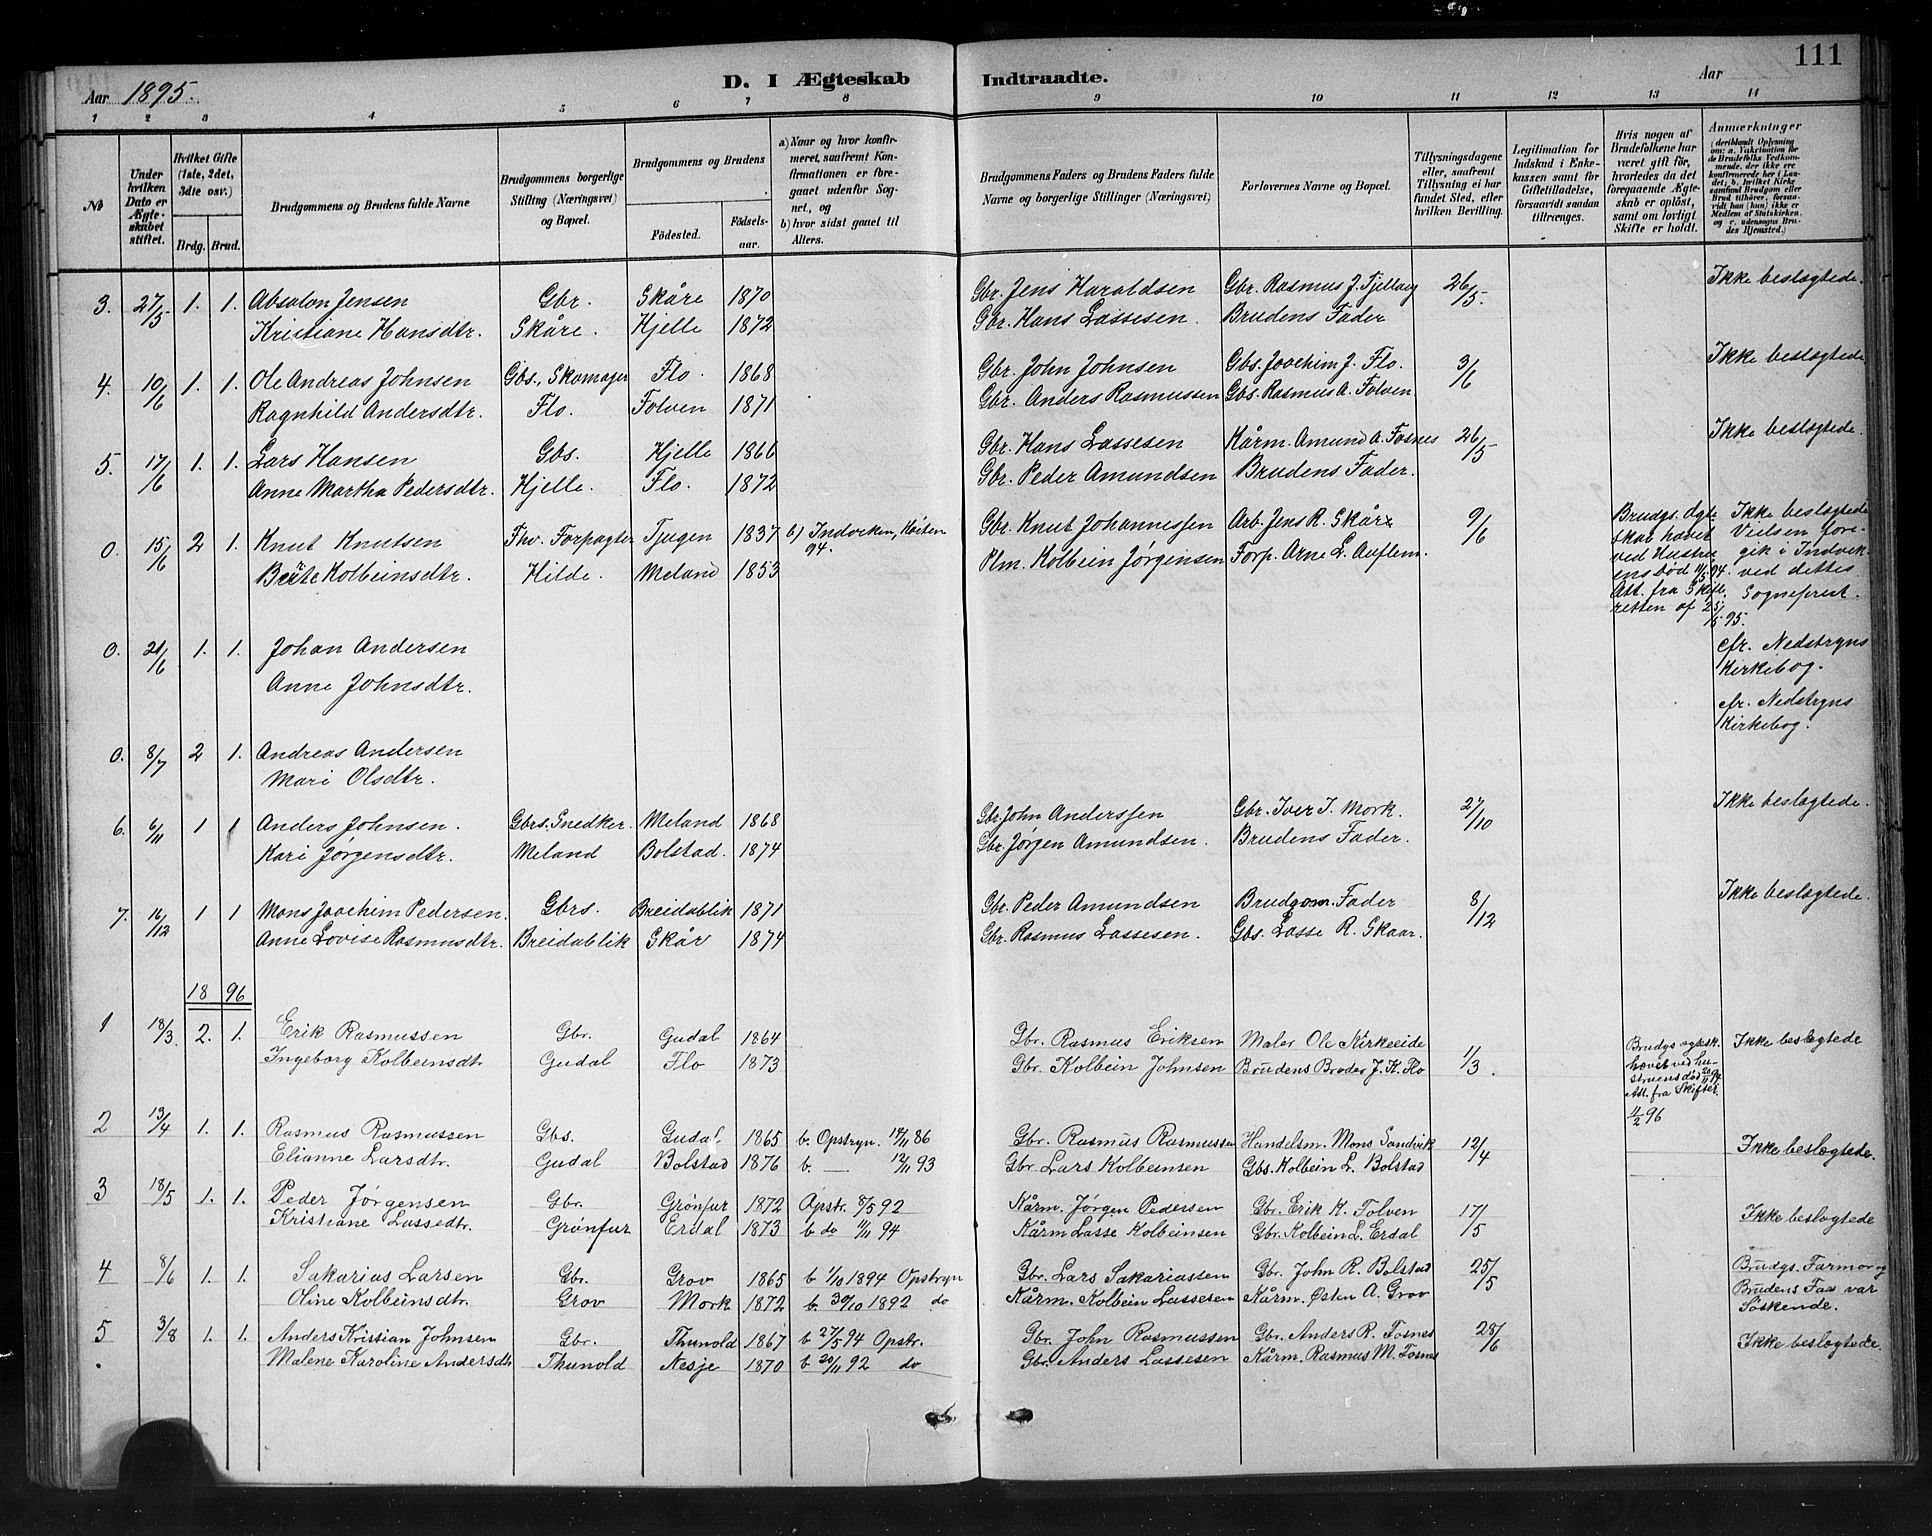 111
Aar 1895.
D. I Ægteskab Indtraadte.
Aar
1 2 3 4 5 6 7 8 9 10 11 12 13 14
№
Under hvilken Dato er Ægteskabet stiftet.
Hvilket Gifte (1ste, 2det, 3dte osv.)
Brdg. Brud.
Brudgommens og Brudens fulde Navne
Brudgommens borgerlige Stilling (Næringsvei) og Bopæl.
Brudgommens og Brudens
Fødested. Fødselsaar.
a) Naar og hvor konfirmeret, saafremt Konfirmationen er foregaaet udenfor Sognet, og
b) hvor sidst gaaet til Alters.
Brudgommens Faders og Brudens Faders fulde Navne og borgerlige Stillinger (Næringsvei)
Forlovernes Navne og Bopæl.
Tillysningsdagene eller, saafremt Tillysning ei har fundet Sted, efter hvilken Bevilling.
Legitimation for Indskud i Enkekassen samt for Giftetilladelse, forsaavidt saadan tiltrænges.
Hvis nogen af Brudefolkene har været gift før, hvorledes da det foregaaende Ægteskab er opløst, samt om lovligt Skifte er holdt.
Anmærkninger (deriblandt Oplysning om: a. Vakcination for de Brudefolks Vedkommende, der ikke ere konfirmerede her i Landet; b. hvilket Kirkesamfund Brudgom eller Brud tilhører, forsaavidt han (hun) ikke er Medlem af Statskirken, og c. udensogns Brudes Hjemsted.)
3. 27/5 1. 1. Absalon Jensen Gbr. Skåre 1870 Gbr. Jens Haraldsen Gbr. Rasmus J. Fjellaug 26/5. Ikke beslægtede.
Kristiane Hansdtr. Skåre. Hjelle 1872 Gbr. Hans Lassesen. Brudens Fader
4. 10/6 1. 1. Ole Andreas Johnsen Gbs., Skomager Flo. 1868 Gbr. John Johnsen Gbs. Joachim J. Flo. 3/6 Ikke beslægtede
Ragnhild Andersdtr. Flo. Folven 1871 Gbr. Anders Rasmussen Gbs. Rasmus A. Folven
5. 17/6 1. 1. Lars Hansen Gbs. Hjelle 1866 Gbr. Hans Lassesen Kårm. Amund A. Fosnes 26/5 Ikke beslægtede.
Anne Martha Pedersdtr. Hjelle. Flo. 1872 Gbr. Peder Amundsen Brudens Fader.
0. 15/6 2 1. Knut Knutsen Fhv. Forpagter Tjugen 1837 b) Indviken, Høsten 94. Gbr. Knut Johannessen Arb. Jens R. Skåre 9/6
Berte Kolbeinsdtr. Hilde. Meland 1853 Plm. Kolbein Jørgensen Forp. Arne L. Auflem.
Brudgs. Ægteskab hævet ved Hustruens Død 11/5 94. Att. fra Skifteretten af 25/5 95.
Ikke beslægtede Vielsen foregik i Indvik ved dettes Sogneprest.
0. 21/6 1. 1. Johan Andersen cfr. Nedstryns
Anne Johnsdtr. Kirkebog.
0. 8/7 2 1. Andreas Andersen cfr. Nedstryns
Mari Olsdtr. Kirkebog.
6. 6/11 1 1 Anders Johnsen. Gbrs. Snedker. Meland 1868 Gbr. John Anderssen Gbr. Iver I. Mork. 27/10 Ikke beslægtede.
Kari Jørgensdtr. Meland Bolstad. 1874 Gbr. Jørgen Amundsen. Brudens Fader.
7. 16/12 1 1 Mons Joachim Pedersen. Gbrs. Breidablik 1871 Gbr. Peder Amundsen Brudgom. Fader 8/12 Ikke beslægtede.
Anne Lovise Rasmusdtr. Breidablik Skår 1874 Gbr. Rasmus Lassesen. Gbs. Lasse R. Skaar.
1896
1 18/3. 2. 1. Erik Rasmussen Gbr. Gudal 1864 Gbr. Rasmus Eriksen Maler Ole Kirkeeide 1/3. Ikke beslægtede
Ingeborg Kolbeinsdtr Gudal Flo 1873 Gbr. Kolbein Johnsen Brudens Broder J. K. Flo
Brudgs ægtesk. hævet ved hustruens død 20/11 94. Att. fra Skifter. 4/2 96
2 13/4 1. 1. Rasmus Rasmussen Gbs. Gudal, 1865 b. Opstryn. 14/11 86 Gbr. Rasmus Rasmussen Handelsm. Mons Sandvik 12/4 Ikke beslægtede.
Elianne Larsdtr. Gudal Bolstad 1876 b. — 12/11 93 Gbr. Lars Kolbeinsen Gbs. Kolbein L. Bolstad
3 18/5 1. 1. Peder Jørgensen Gbr. Grønfur 1872 Opstr. 8/5 92 Kårm. Jørgen Pedersen Gbr. Erik K. Folven 17/5 Ikke beslægtede
Kristiane Lassedtr. Grønfur Erdal 1873 b do 11/11 94 Kårm Lasse Kolbeinsen Gbr. Kolbein L. Erdal
4 8/6 1. 1. Sakarias Larsen Gbr. Grov 1865 b 1/10 1894 Opstryn Gbr. Lars Sakariassen Gbr. John R. Bolstad 25/5 Brudgs. Farmor og
Oline Kolbeinsdtr. Grov Mork 1872 b. 30/10 1892 do Kårm. Kolbein Lassesen Kårm. Østen A. Grov Brudens Far var Søskende.
5 3/8 1. 1. Anders Kristian Johnsen Gbr. Thunold 1867 b 27/5 94 Opstr. Gbr. John Rasmussen Gbr. Anders R. Fosnes 28/6 Ikke beslægtede.
Malene Karoline Andersdtr Thunold Nesje 1870 b 20/11 92 do Gbr. Anders Lassesen Kårm. Rasmus M. Fosnes